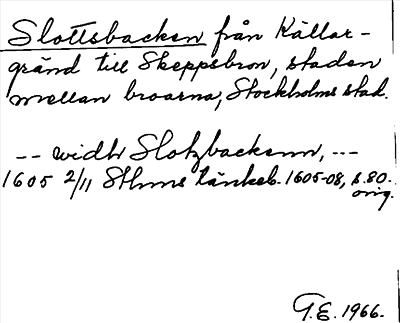 Slottsbacken från Källar-
gränd till Skeppsbron, staden
mellan broarna, Stockholms stad.
-- widh Slotzbackenn, ---
1605 2/11 Sthms tänkeb. 1605-08, s.80.
orig.
G.E. 1966.